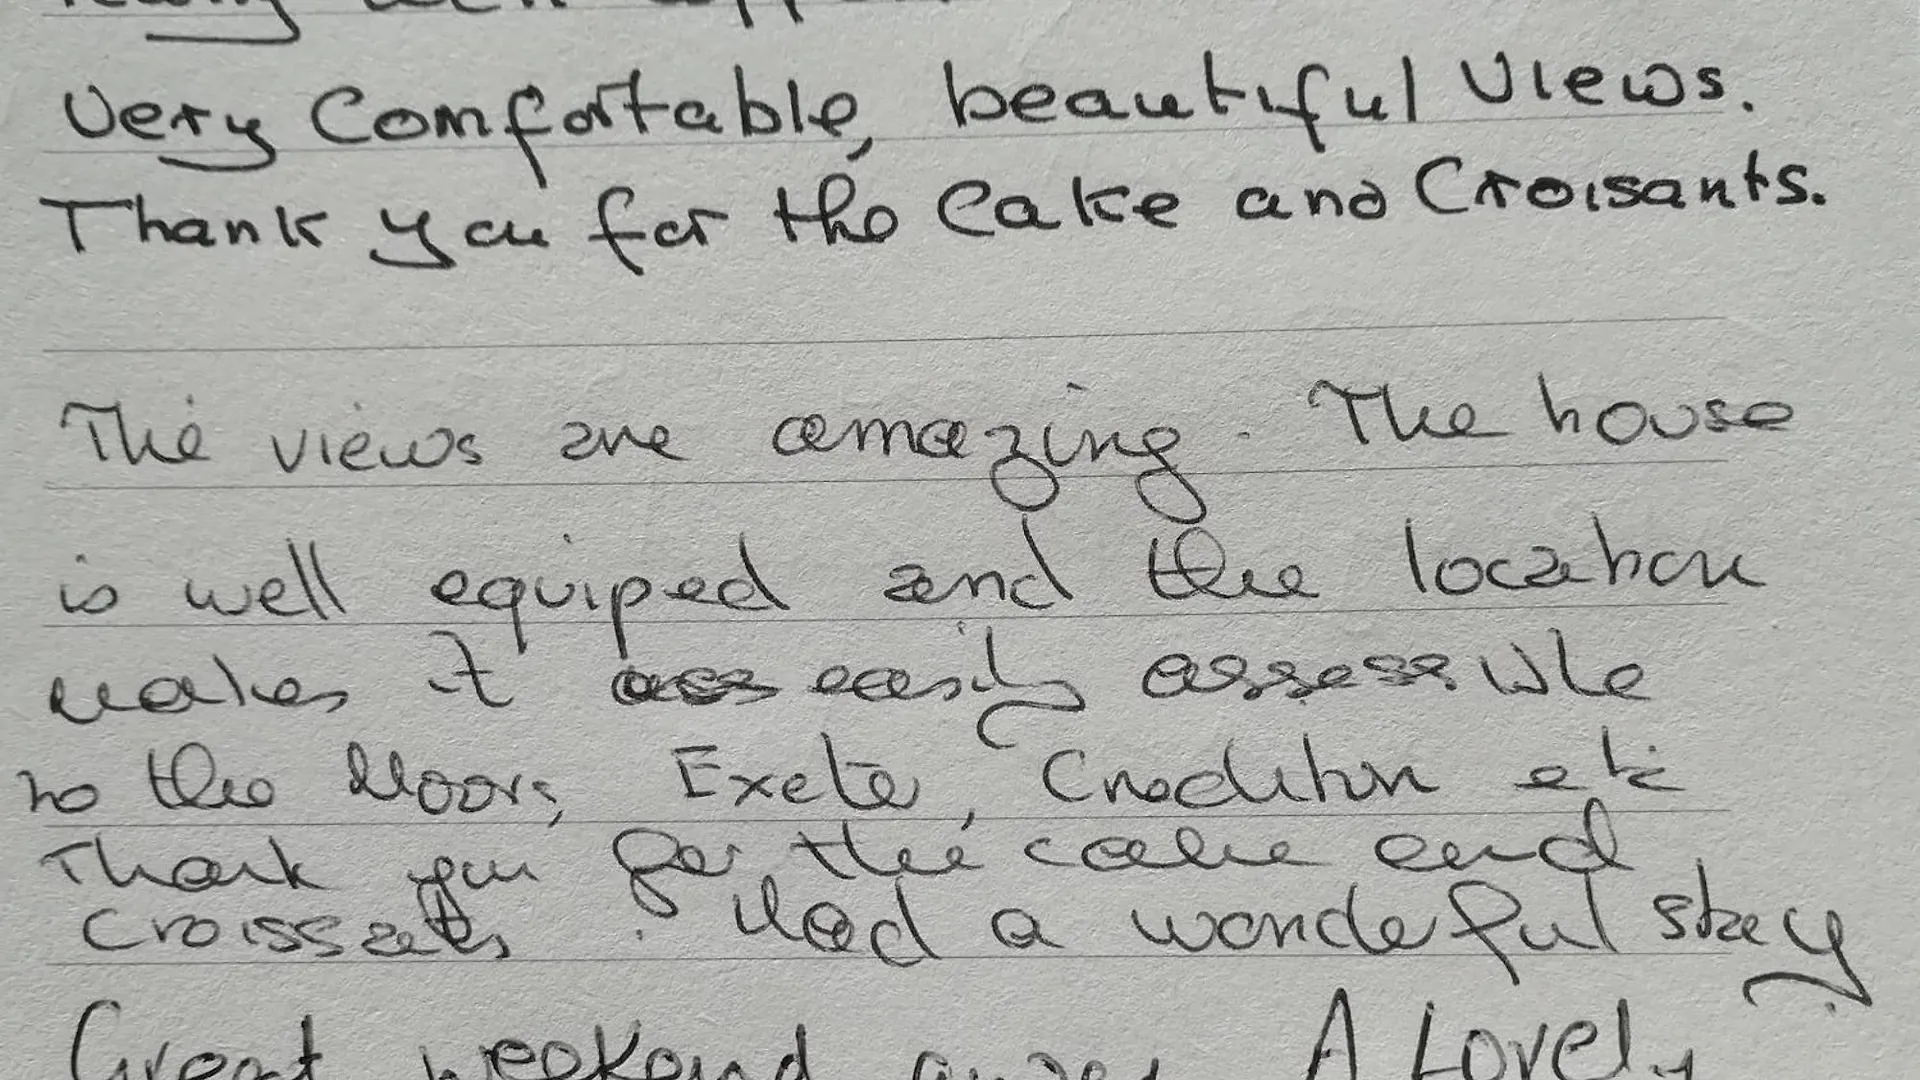 Very Comfortable, beautiful Views.
Thank you for the Cake and Croisants.
The views are amazing. The house
is well equiped and the location
makes it easily assessible
to the Moors, Exeter, Crediton etc
Thank you for the cake and
croissats. Had a wonderful stay
Great weekend away. A Lovely